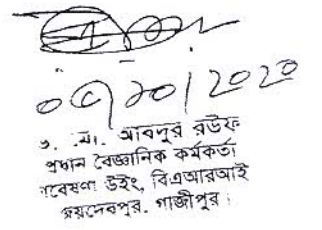 ০৭/১০/2020
ড. মো. আবদুর রউফ
প্রধান বৈজ্ঞানিক কর্মকর্তা
গবেষণা উইং, বিএআরআই
জয়দেবপুর, গাজীপুর।